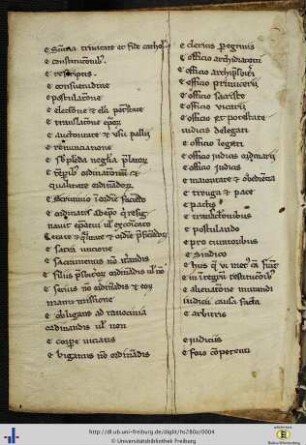 e summa trinitate et fide cathol
e constitucionib
e rescriptis
e consuetudine
e postulatione
e electione & elci potestate
e translatione epor
e auctoritate & usu pallii
e renunciatione
e supplenda neglig prelator
e temporib ordinationum &
qualitate ordinandor
e scrutinio i ordie faciedo
e ordinatis ab epo q resig
navit epatui ul excoicatis
e etate & qlitate & ordie pficiendor
e sacra unctione
e sacramentis no iterandis
e filiis presbiteror ordinandis ul no
e servis no ordinandis & eor
manumissione
e obligatis ad ratiocinia
ordinandis ul non
e corpore viciatis
e bigamis no ordinandis
e clericis peregrinis
e officio archidiaconi
e officio archipbiteri
e officio primicerii
e officio sacriste
e officio vicarii
e officio et potestate
iudicis delegati
e officio legati
e officio iudicis ordinarii
e officio iudicis
e maioritate & obediencia
e treuga & pace
e pactis
e transactionibus
e postulando
e procuratoribus
e sindico
e hiis q vi metus ca fiunt
e in integrum restitucioib
e alienatione mutandi
iudicii causa facta
e arbitris
e iudiciis
e foro competenti
http://dl.ub.uni-freiburg.de/diglit/hs280a/0004
© Universitätsbibliothek Freiburg